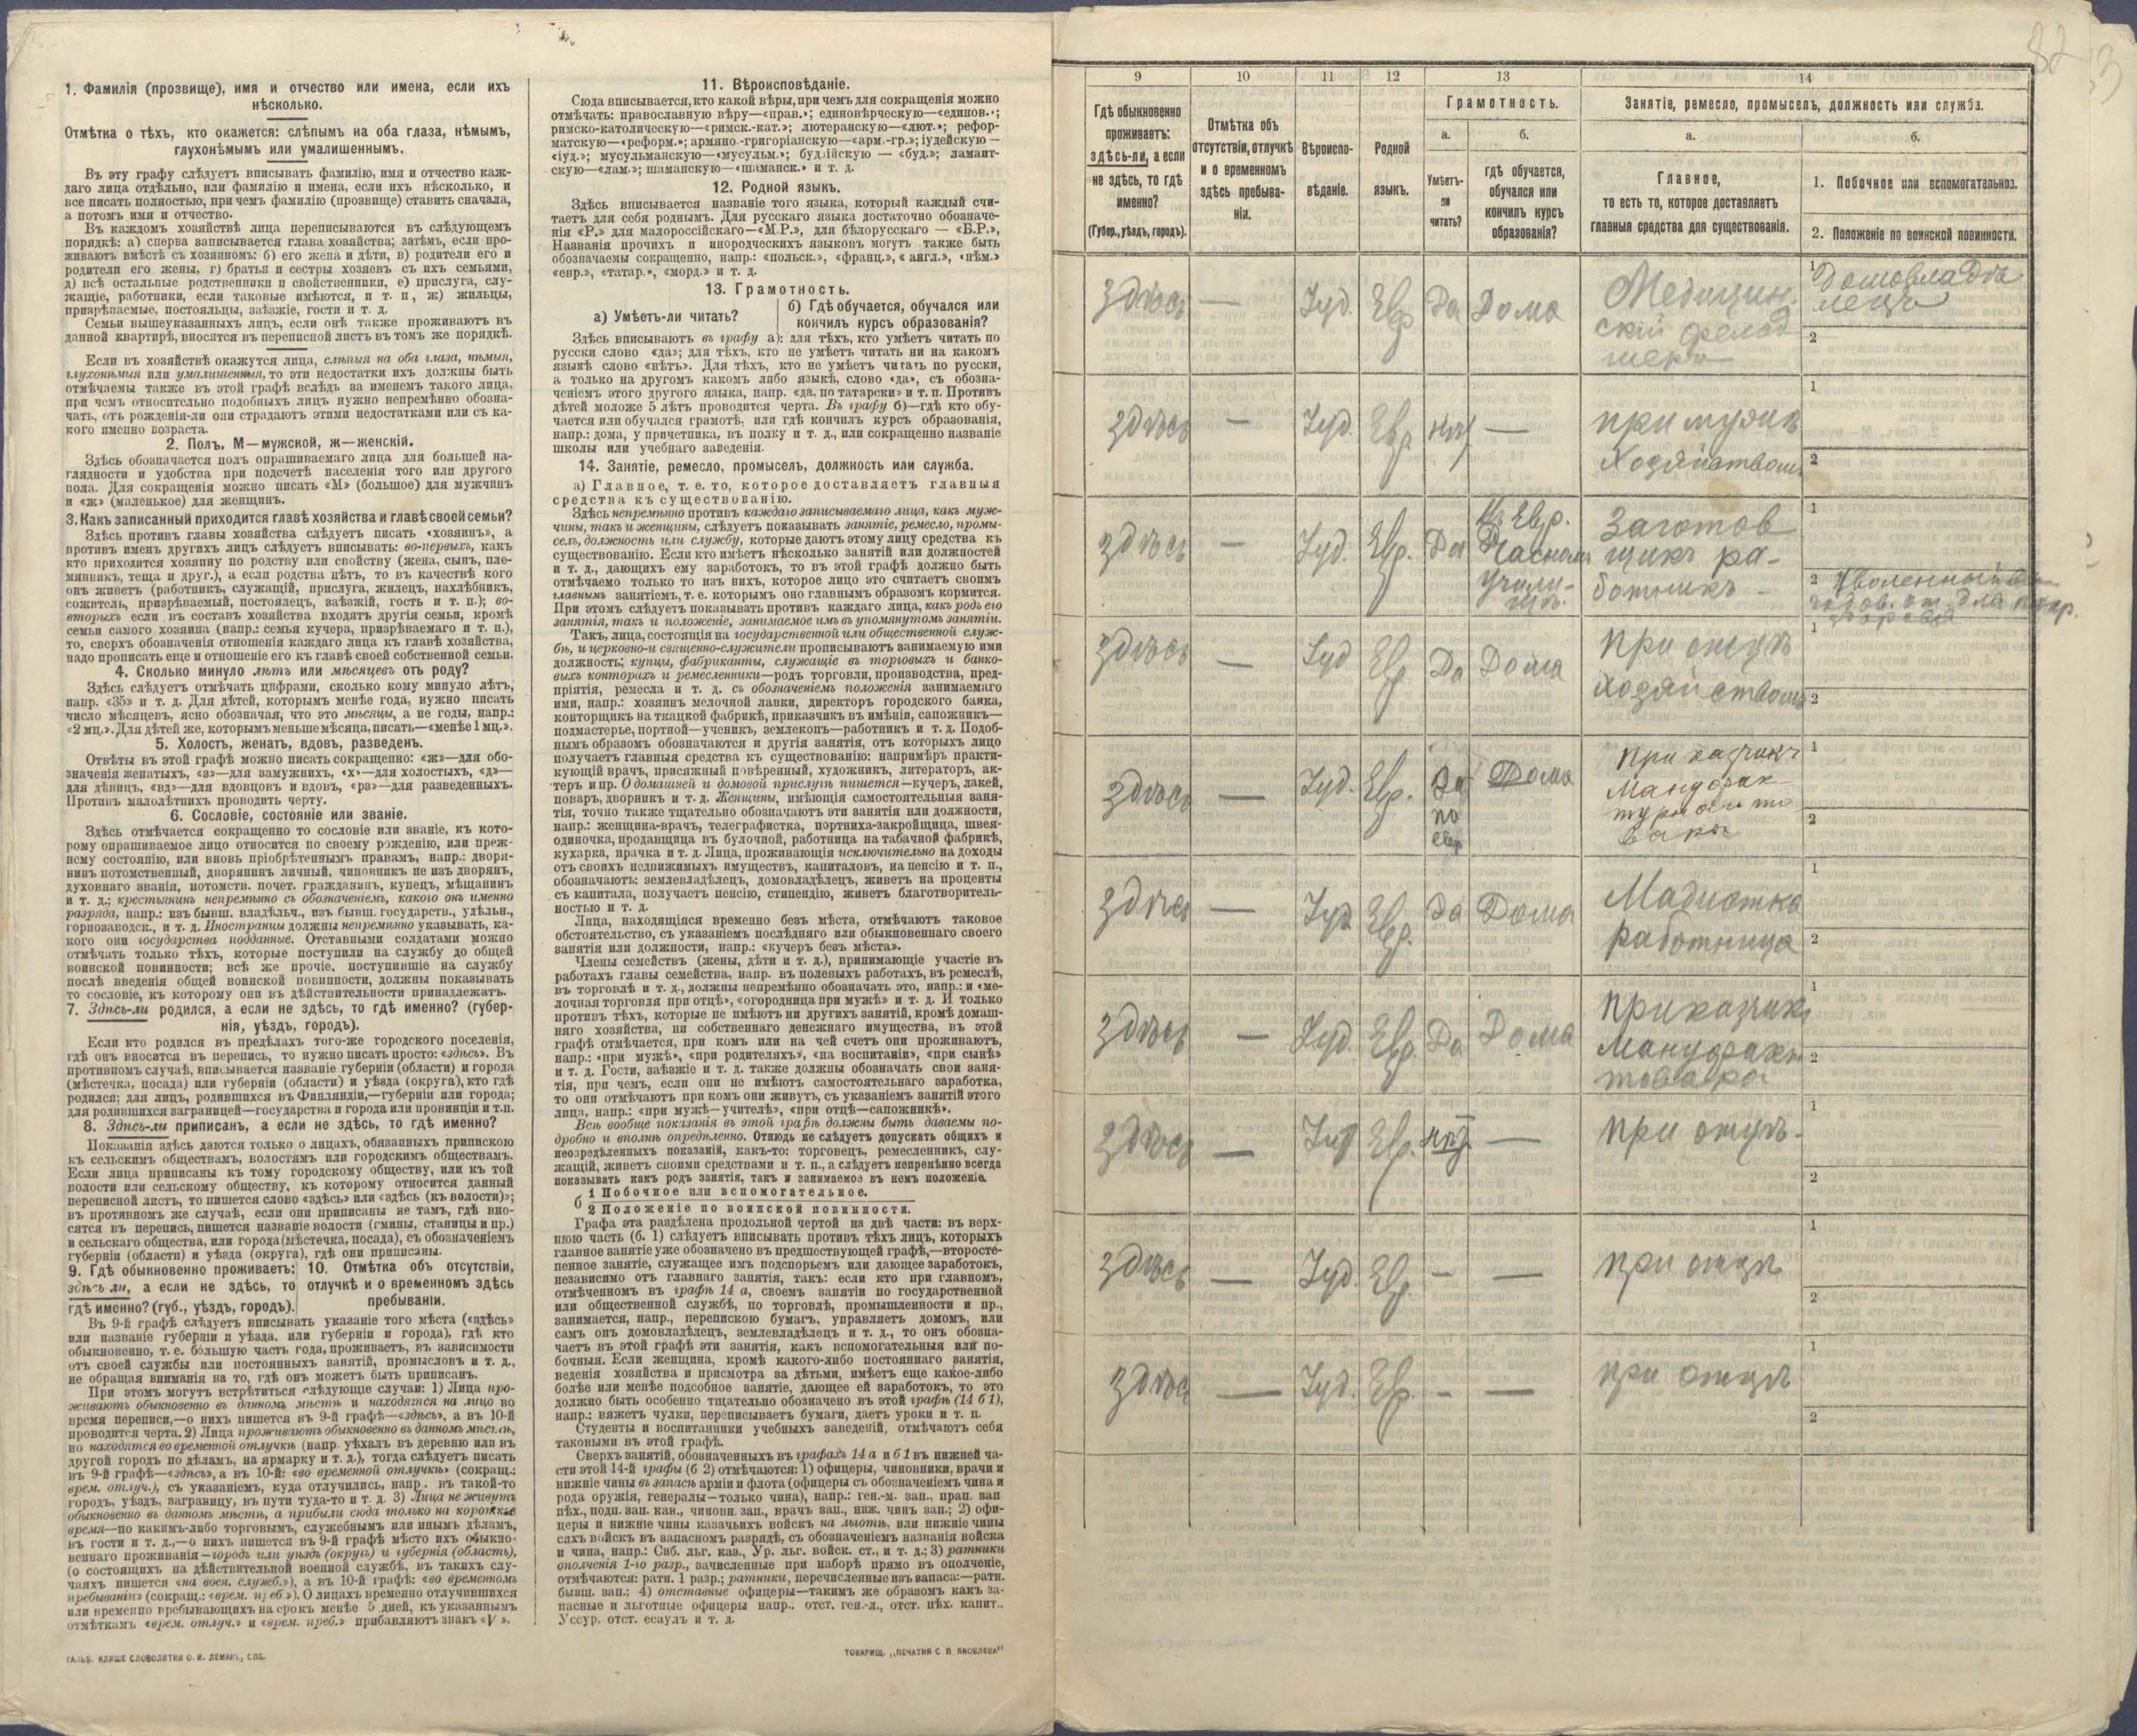 1. Фамилія (прозвище), имя и отчество или имена, если ихъ
нѣсколько.
Отмѣтка о тѣхъ, кто окажется: слѣпымъ на оба глаза, нѣмымъ,
глухонѣмымъ или умалишеннымъ.
Въ эту графу слѣдуетъ вписывать фамилію, имя и отчество каж-
даго лица отдѣльно, или фамилію и имена, если ихъ нѣсколько, и
все писать полностью, при чемъ фамилію (прозвище) ставить сначала,
а потомъ имя и отчество.
Въ каждомъ хозяйствѣ лица переписываются въ слѣдующемъ
порядкѣ: а) сперва записывается глава хозяйства; затѣмъ, если про-
живаютъ вмѣстѣ съ хозяиномъ: б) его жена и дѣти, в) родители его и
родители его жены, г) братья и сестры хозяевъ съ ихъ семьями,
д) всѣ остальные родственники и свойственники, е) прислуга, слу-
жащіе, работники, если таковые имѣются, и т. п, ж) жильцы,
призрѣваемые, постояльцы, заѣзжіе, гости и т. д.
Семьи вышеуказанныхъ лицъ, если онѣ также проживаютъ въ
данной квартирѣ, вносятся въ переписной листъ въ томъ же порядкѣ.
Если въ хозяйствѣ окажутся лица, слѣпыя на оба глаза, нѣмыя,
глухонѣмыя или умалишенныя, то эти недостатки ихъ должны быть
отмѣчаемы также въ этой графѣ вслѣдъ за именемъ такого лица,
при чемъ относительно подобныхъ лицъ нужно непремѣнно обозна-
чать, отъ рожденія-ли они страдаютъ этими недостатками или съ ка-
кого именно возраста.
2. Полъ, М—мужской, ж—женскій.
Здѣсь обозначается полъ опрашиваемаго лица для большей на-
глядности и удобства при подсчетѣ населенія того или другого
пола. Для сокращенія можно писать «М» (большое) для мужчинъ
и «ж» (маленькое) для женщинъ.
3. Какъ записанный приходится главѣ хозяйства и главѣ своей семьи?
Здѣсь противъ главы хозяйства слѣдуетъ писать «хозяинъ», а
противъ именъ другихъ лицъ слѣдуетъ вписывать: во-первыхъ, какъ
кто приходится хозяину по родству или свойству (жена, сынъ, пле-
мянникъ, теща и друг.), а если родства нѣтъ, то въ качествѣ кого
онъ живетъ (работникъ, служащій, прислуга, жилецъ, нахлѣбникъ,
сожитель, призрѣваемый, постоялецъ, заѣзжій, гость и т. п.); во-
вторыхъ если въ составъ хозяйства входятъ другія семьи, кромѣ
семьи самого хозяина (напр.: семья кучера, призрѣваемаго и т. п.),
то, сверхъ обозначенія отношенія каждаго лица къ главѣ хозяйства,
надо прописать еще и отношеніе его къ главѣ своей собственной семьи.
4. Сколько минуло лѣтъ или мѣсяцевъ отъ роду?
Здѣсь слѣдуетъ отмѣчать цифрами, сколько кому минуло лѣтъ,
напр. «35» и т. д. Для дѣтей, которымъ менѣе года, нужно писать
число мѣсяцевъ, ясно обозначая, что это мѣсяцы, а не годы, напр.:
«2 мц.». Для дѣтей же, которымъ меньше мѣсяца, писать—«менѣе 1 мц.».
5. Холостъ, женатъ, вдовъ, разведенъ.
Отвѣты въ этой графѣ можно писать сокращенно: «ж»—для обо-
значенія женатыхъ, «з»—для замужнихъ, «х»—для холостыхъ, «д»—
для дѣвицъ, «вд»—для вдовцовъ и вдовъ, «рз»—для разведенныхъ.
Противъ малолѣтнихъ проводить черту.
6. Сословіе, состояніе или званіе.
Здѣсь отмѣчается сокращенно то сословіе или званіе, къ кото-
рому опрашиваемое лицо относится по своему рожденію, или преж-
нему состоянію, или вновь пріобрѣтеннымъ правамъ, напр.: дворя-
нинъ потомственный, дворянинъ личный, чиновникъ не изъ дворянъ,
духовнаго званія, потомств. почет. гражданинъ, купецъ, мѣщанинъ
и т. д.; крестьянинъ непремѣнно съ обозначеніемъ, какого онъ именно
разряда, напр.: изъ бывш. владѣльч., изъ бывш. государств., удѣльн.,
горнозаводск., и т. д. Иностранцы должны непремѣнно указывать, ка-
кого они государства подданные. Отставными солдатами можно
отмѣчать только тѣхъ, которые поступили на службу до общей
воинской повинности; всѣ же прочіе, поступившіе на службу
послѣ введенія общей воинской повинности, должны показывать
то сословіе, къ которому они въ дѣйствительности принадлежатъ.
7. Здѣсь-ли родился, а если не здѣсь, то гдѣ именно? (губер-
нія, уѣздъ, городъ).
Если кто родился въ предѣлахъ того-же городского поселенія,
гдѣ онъ вносится въ перепись, то нужно писать просто: «здѣсь». Въ
противномъ случаѣ, вписывается названіе губерніи (области) и города
(мѣстечка, посада) или губерніи (области) и уѣзда (округа), кто гдѣ
родился; для лицъ, родившихся въ Финляндіи,—губерніи или города;
для родившихся заграницей—государства и города или провинціи и т.п.
8. Здѣсь-ли приписанъ, а если не здѣсь, то гдѣ именно?
Показанія здѣсь даются только о лицахъ, обязанныхъ припискою
къ сельскимъ обществамъ, волостямъ или городскимъ обществамъ.
Если лица приписаны къ тому городскому обществу, или къ той
волости или сельскому обществу, къ которому относится данный
переписной листъ, то пишется слово «здѣсь» или «здѣсь (къ волости)»;
въ противномъ же случаѣ, если они приписаны не тамъ, гдѣ вно-
сятся въ перепись, пишется названіе волости (гмины, станицы и пр.)
и сельскаго общества, или города (мѣстечка, посада), съ обозначеніемъ
губерніи (области) и уѣзда (округа), гдѣ они приписаны.
9. Гдѣ обыкновенно проживаетъ:
здѣсь ли, а если не здѣсь, то
гдѣ именно? (губ., уѣздъ, городъ).
10. Отмѣтка объ отсутствіи,
отлучкѣ и о временномъ здѣсь
пребываніи.
Въ 9-й графѣ слѣдуетъ вписывать указаніе того мѣста («здѣсь»
или названіе губерніи и уѣзда, или губерніи и города), гдѣ кто
обыкновенно, т. е. большую часть года, проживаетъ, въ зависимости
отъ своей службы или постоянныхъ занятій, промысловъ и т. д.,
не обращая вниманія на то, гдѣ онъ можетъ быть приписанъ.
При этомъ могутъ встрѣтиться слѣдующіе случаи: 1) Лица про-
живаютъ обыкновенно въ данномъ мѣстѣ и находятся на лицо во
время переписи,—о нихъ пишется въ 9-й графѣ—«здѣсь», а въ 10-й
проводится черта. 2) Лица проживаютъ обыкновенно въ данномъ мѣстѣ,
но находятся во временной отлучкѣ (напр. уѣхалъ въ деревню или въ
другой городъ по дѣламъ, на ярмарку и т. д.), тогда слѣдуетъ писать
въ 9-й графѣ—«здѣсь», а въ 10-й: «во временной отлучкѣ» (сокращ.:
врем. отлуч.), съ указаніемъ, куда отлучились, напр. въ такой-то
городъ, уѣздъ, заграницу, въ пути туда-то и т. д. 3) Лица не живутъ
обыкновенно въ данномъ мѣстѣ, а прибыли сюда только на короткое
время—по какимъ-либо торговымъ, служебнымъ или инымъ дѣламъ,
въ гости и т. д.,—о нихъ пишется въ 9-й графѣ мѣсто ихъ обыкно-
веннаго проживанія—городъ или уѣздъ (округъ) и губернія (область),
(о состоящихъ на дѣйствительной военной службѣ, въ такихъ слу-
чаяхъ пишется «на воен. служб.»), а въ 10-й графѣ: «во временномъ
пребываніи» (сокращ.: «врем. преб.»). О лицахъ временно отлучившихся
или временно пребывающихъ на срокъ менѣе 5 дней, къ указаннымъ
отмѣткамъ «врем. отлуч.» и «врем. преб.» прибавляютъ знакъ «V».
ГАЛЬВ. КЛИШЕ СЛОВОЛИТНИ О. И. ЛЕМАНЪ, СПБ.
11. Вѣроисповѣданіе.
Сюда вписывается, кто какой вѣры, при чемъ для сокращенія можно
отмѣчать: православную вѣру—«прав.»; единовѣрческую—«единов.»;
римско-католическую—«римск.-кат.»; лютеранскую—«лют.»; рефор-
матскую—«реформ.»; армяно-григоріанскую—«арм.-гр.»; іудейскую—
«іуд.»; мусульманскую—«мусульм.»; буддійскую — «буд.»; ламаит-
скую—«лам.»; шаманскую—«шаманск.» и т. д.
12. Родной языкъ.
Здѣсь вписывается названіе того языка, который каждый счи-
таетъ для себя роднымъ. Для русскаго языка достаточно обозначе-
нія «Р.» для малороссійскаго—«М.Р.», для бѣлорусскаго — «Б.Р.»,
Названія прочихъ и инородческихъ языковъ могутъ также быть
обозначаемы сокращенно, напр.: «польск.», «франц.», «англ.», «нѣм.»
«евр.», «татар.», «морд.» и т. д.
13. Грамотность.
а) Умѣетъ-ли читать?
б) Гдѣ обучается, обучался или
кончилъ курсъ образованія?
Здѣсь вписываютъ въ графу а): для тѣхъ, кто умѣетъ читать по
русски слово «да»; для тѣхъ, кто не умѣетъ читать ни на какомъ
языкѣ слово «нѣтъ». Для тѣхъ, кто не умѣетъ читать по русски,
а только на другомъ какомъ либо языкѣ, слово «да», съ обозна-
ченіемъ этого другого языка, напр. «да, по татарски» и т. п. Противъ
дѣтей моложе 5 лѣтъ проводится черта. Въ графу б)—гдѣ кто обу-
чается или обучался грамотѣ, или гдѣ кончилъ курсъ образованія,
напр.: дома, у причетника, въ полку и т. д., или сокращенно названіе
школы или учебнаго заведенія.
14. Занятіе, ремесло, промыселъ, должность или служба.
а) Главное, т. е. то, которое доставляетъ главныя
средства къ существованію.
Здѣсь непремѣнно противъ каждаго записываемаго лица, какъ муж-
чины, такъ и женщины, слѣдуетъ показывать занятіе, ремесло, промы-
селъ, должность или службу, которые даютъ этому лицу средства къ
существованію. Если кто имѣетъ нѣсколько занятій или должностей
и т. д., дающихъ ему заработокъ, то въ этой графѣ должно быть
отмѣчаемо только то изъ нихъ, которое лицо это считаетъ своимъ
главнымъ занятіемъ, т. е. которымъ оно главнымъ образомъ кормится.
При этомъ слѣдуетъ показывать противъ каждаго лица, какъ родъ его
занятія, такъ и положеніе, занимаемое имъ въ упомянутомъ занятіи.
Такъ, лица, состоящія на государственной или общественной служ-
бѣ, и церковно-и священно-служители прописываютъ занимаемую ими
должность; купцы, фабриканты, служащіе въ торговыхъ и банко-
выхъ конторахъ и ремесленники—родъ торговли, производства, пред-
пріятія, ремесла и т. д. съ обозначеніемъ положенія занимаемаго
ими, напр.: хозяинъ мелочной лавки, директоръ городского банка,
конторщикъ на ткацкой фабрикѣ, приказчикъ въ имѣніи, сапожникъ—
подмастерье, портной—ученикъ, землекопъ—работникъ и т. д. Подоб-
нымъ образомъ обозначаются и другія занятія, отъ которыхъ лицо
получаетъ главныя средства къ существованію: напримѣръ практи-
кующій врачъ, присяжный повѣренный, художникъ, литераторъ, ак-
теръ и пр. О домашней и домовой прислугѣ пишется—кучеръ, лакей,
поваръ, дворникъ и т. д. Женщины, имѣющія самостоятельныя заня-
тія, точно также тщательно обозначаютъ эти занятія или должности,
напр.: женщина-врачъ, телеграфистка, портниха-закройщица, швея-
одиночка, продавщица въ булочной, работница на табачной фабрикѣ,
кухарка, прачка и т. д. Лица, проживающія исключительно на доходы
отъ своихъ недвижимыхъ имуществъ, капиталовъ, на пенсію и т. п.,
обозначаютъ: землевладѣлецъ, домовладѣлецъ, живетъ на проценты
съ капитала, получаетъ пенсію, стипендію, живетъ благотворитель-
ностью и т. д.
Лица, находящіяся временно безъ мѣста, отмѣчаютъ таковое
обстоятельство, съ указаніемъ послѣдняго или обыкновеннаго своего
занятія или должности, напр.: «кучеръ безъ мѣста».
Члены семействъ (жены, дѣти и т. д.), принимающіе участіе въ
работахъ главы семейства, напр. въ полевыхъ работахъ, въ ремеслѣ,
въ торговлѣ и т. д., должны непремѣнно обозначать это, напр.: и «ме-
лочная торговля при отцѣ», «огородница при мужѣ» и т. д. И только
противъ тѣхъ, которые не имѣютъ ни другихъ занятій, кромѣ домаш-
няго хозяйства, ни собственнаго денежнаго имущества, въ этой
графѣ отмѣчается, при комъ или на чей счетъ они проживаютъ,
напр.: «при мужѣ», «при родителяхъ», «на воспитаніи», «при сынѣ»
и т. д. Гости, заѣзжіе и т. д. также должны обозначать свои заня-
тія, при чемъ, если они не имѣютъ самостоятельнаго заработка,
то они отмѣчаютъ при комъ они живутъ, съ указаніемъ занятій этого
лица, напр.: «при мужѣ—учителѣ», «при отцѣ—сапожникѣ».
Всѣ вообще показанія въ этой графѣ должны быть даваемы по-
дробно и вполнѣ опредѣленно. Отнюдь не слѣдуетъ допускать общихъ и
неопредѣленныхъ показаній, какъ-то: торговецъ, ремесленникъ, слу-
жащій, живетъ своими средствами и т. п., а слѣдуетъ непремѣнно всегда
показывать какъ родъ занятія, такъ и занимаемое въ немъ положеніе.
б 1 Побочное или вспомогательное.
2 Положеніе по воинской повинности.
Графа эта раздѣлена продольной чертой на двѣ части: въ верх-
нюю часть (б. 1) слѣдуетъ вписывать противъ тѣхъ лицъ, которыхъ
главное занятіе уже обозначено въ предшествующей графѣ,—второсте-
пенное занятіе, служащее имъ подспорьемъ или дающее заработокъ,
независимо отъ главнаго занятія, такъ: если кто при главномъ,
отмѣченномъ въ графѣ 14 а, своемъ занятіи по государственной
или общественной службѣ, по торговлѣ, промышленности и пр.,
занимается, напр., перепискою бумагъ, управляетъ домомъ, или
самъ онъ домовладѣлецъ, землевладѣлецъ и т. д., то онъ обозна-
чаетъ въ этой графѣ эти занятія, какъ вспомогательныя или по-
бочныя. Если женщина, кромѣ какого-либо постояннаго занятія,
веденія хозяйства и присмотра за дѣтьми, имѣетъ еще какое-либо
болѣе или менѣе подсобное занятіе, дающее ей заработокъ, то это
должно быть особенно тщательно обозначено въ этой графѣ (14 б 1),
напр.: вяжетъ чулки, переписываетъ бумаги, даетъ уроки и т. п.
Студенты и воспитанники учебныхъ заведеній, отмѣчаютъ себя
таковыми въ этой графѣ.
Сверхъ занятій, обозначенныхъ въ графахъ 14 а и б 1 въ нижней ча-
сти этой 14-й графы (б 2) отмѣчаются: 1) офицеры, чиновники, врачи и
нижніе чины въ запасѣ арміи и флота (офицеры съ обозначеніемъ чина и
рода оружія, генералы—только чина), напр.: ген.-м. зап., прап. зап
пѣх., подп. зап. кав., чиновн. зап., врачъ зап., ниж. чинъ зап.; 2) офи-
церы и нижніе чины казачьихъ войскъ на льготѣ, или нижніе чины
сихъ войскъ въ запасномъ разрядѣ, съ обозначеніемъ названія войска
и чина, напр.: Сиб. льг. каз., Ур. льг. войск. ст., и т. д.; 3) ратники
ополченія 1-го разр., зачисленные при наборѣ прямо въ ополченіе,
отмѣчаются: ратн. 1 разр.; ратники, перечисленные изъ запаса:—ратн.
бывш. зап.; 4) отставные офицеры—такимъ же образомъ какъ за-
пасные и льготные офицеры напр.. отст. ген.-л., отст. пѣх. капит..
Уссур. отст. есаулъ и т. д.
ТОВАРИЩ. „ПЕЧАТНЯ С. П. ЯКОВЛЕВА"
82
3
9 10 11 12 13 14
Гдѣ обыкновенно
проживаетъ:
здѣсь-ли, а если
не здѣсь, то гдѣ
именно?
(Губер., уѣздъ, городъ).
Отмѣтка объ
отсутствіи, отлучкѣ
и о временномъ
здѣсь пребыва-
ніи.
Вѣроиспо-
вѣданіе.
Родной
языкъ.
Грамотность.
а.
Умѣетъ-
ли
читать?
б.
гдѣ обучается,
обучался или
кончилъ курсъ
образованія?
Занятіе, ремесло, промыселъ, должность или служба.
а.
Главное,
то есть то, которое доставляетъ
главныя средства для существованія.
б.
1. Побочное или вспомогательноз.
2. Положеніе по воинской повинности.
здѣсь — Іуд. Евр Да Дома Медицин.
скій фельд
шеръ
1 Домовладѣ
лецъ
2
здѣсь — Іуд. Евр нѣт — при мужѣ
Хозяйствомъ
1
2
здѣсь — Іуд. Евр. Да Евр.
Частном
учили-
щѣ
Заготов
щикъ ра-
ботникъ -
1
2
здѣсь — Іуд Евр Да Дома При отцѣ
хозяйствомъ
1
2
здѣсь — Іуд. Евр. Да
по
евр
Дома
приказчикъ
Мануфак
турнаго то
вара
1
2
здѣсь — Іуд Евр. Да Дома Мадистка
работница
1
2
здѣсь — Іуд. Евр. Да Дома Приказчик
Мануфакт
товара
1
2
здѣсь — Іуд Евр. нѣт — при отцѣ.
1
2
здѣсь — Іуд. Евр. - — при отцѣ
1
2
здѣсь — Іуд. Евр. - — при отцѣ
1
2